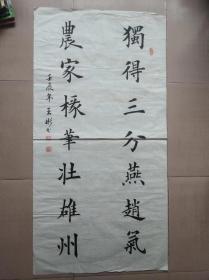 獨得三分燕趙氣
農家椽筆壯雄州
壬辰年王彬书